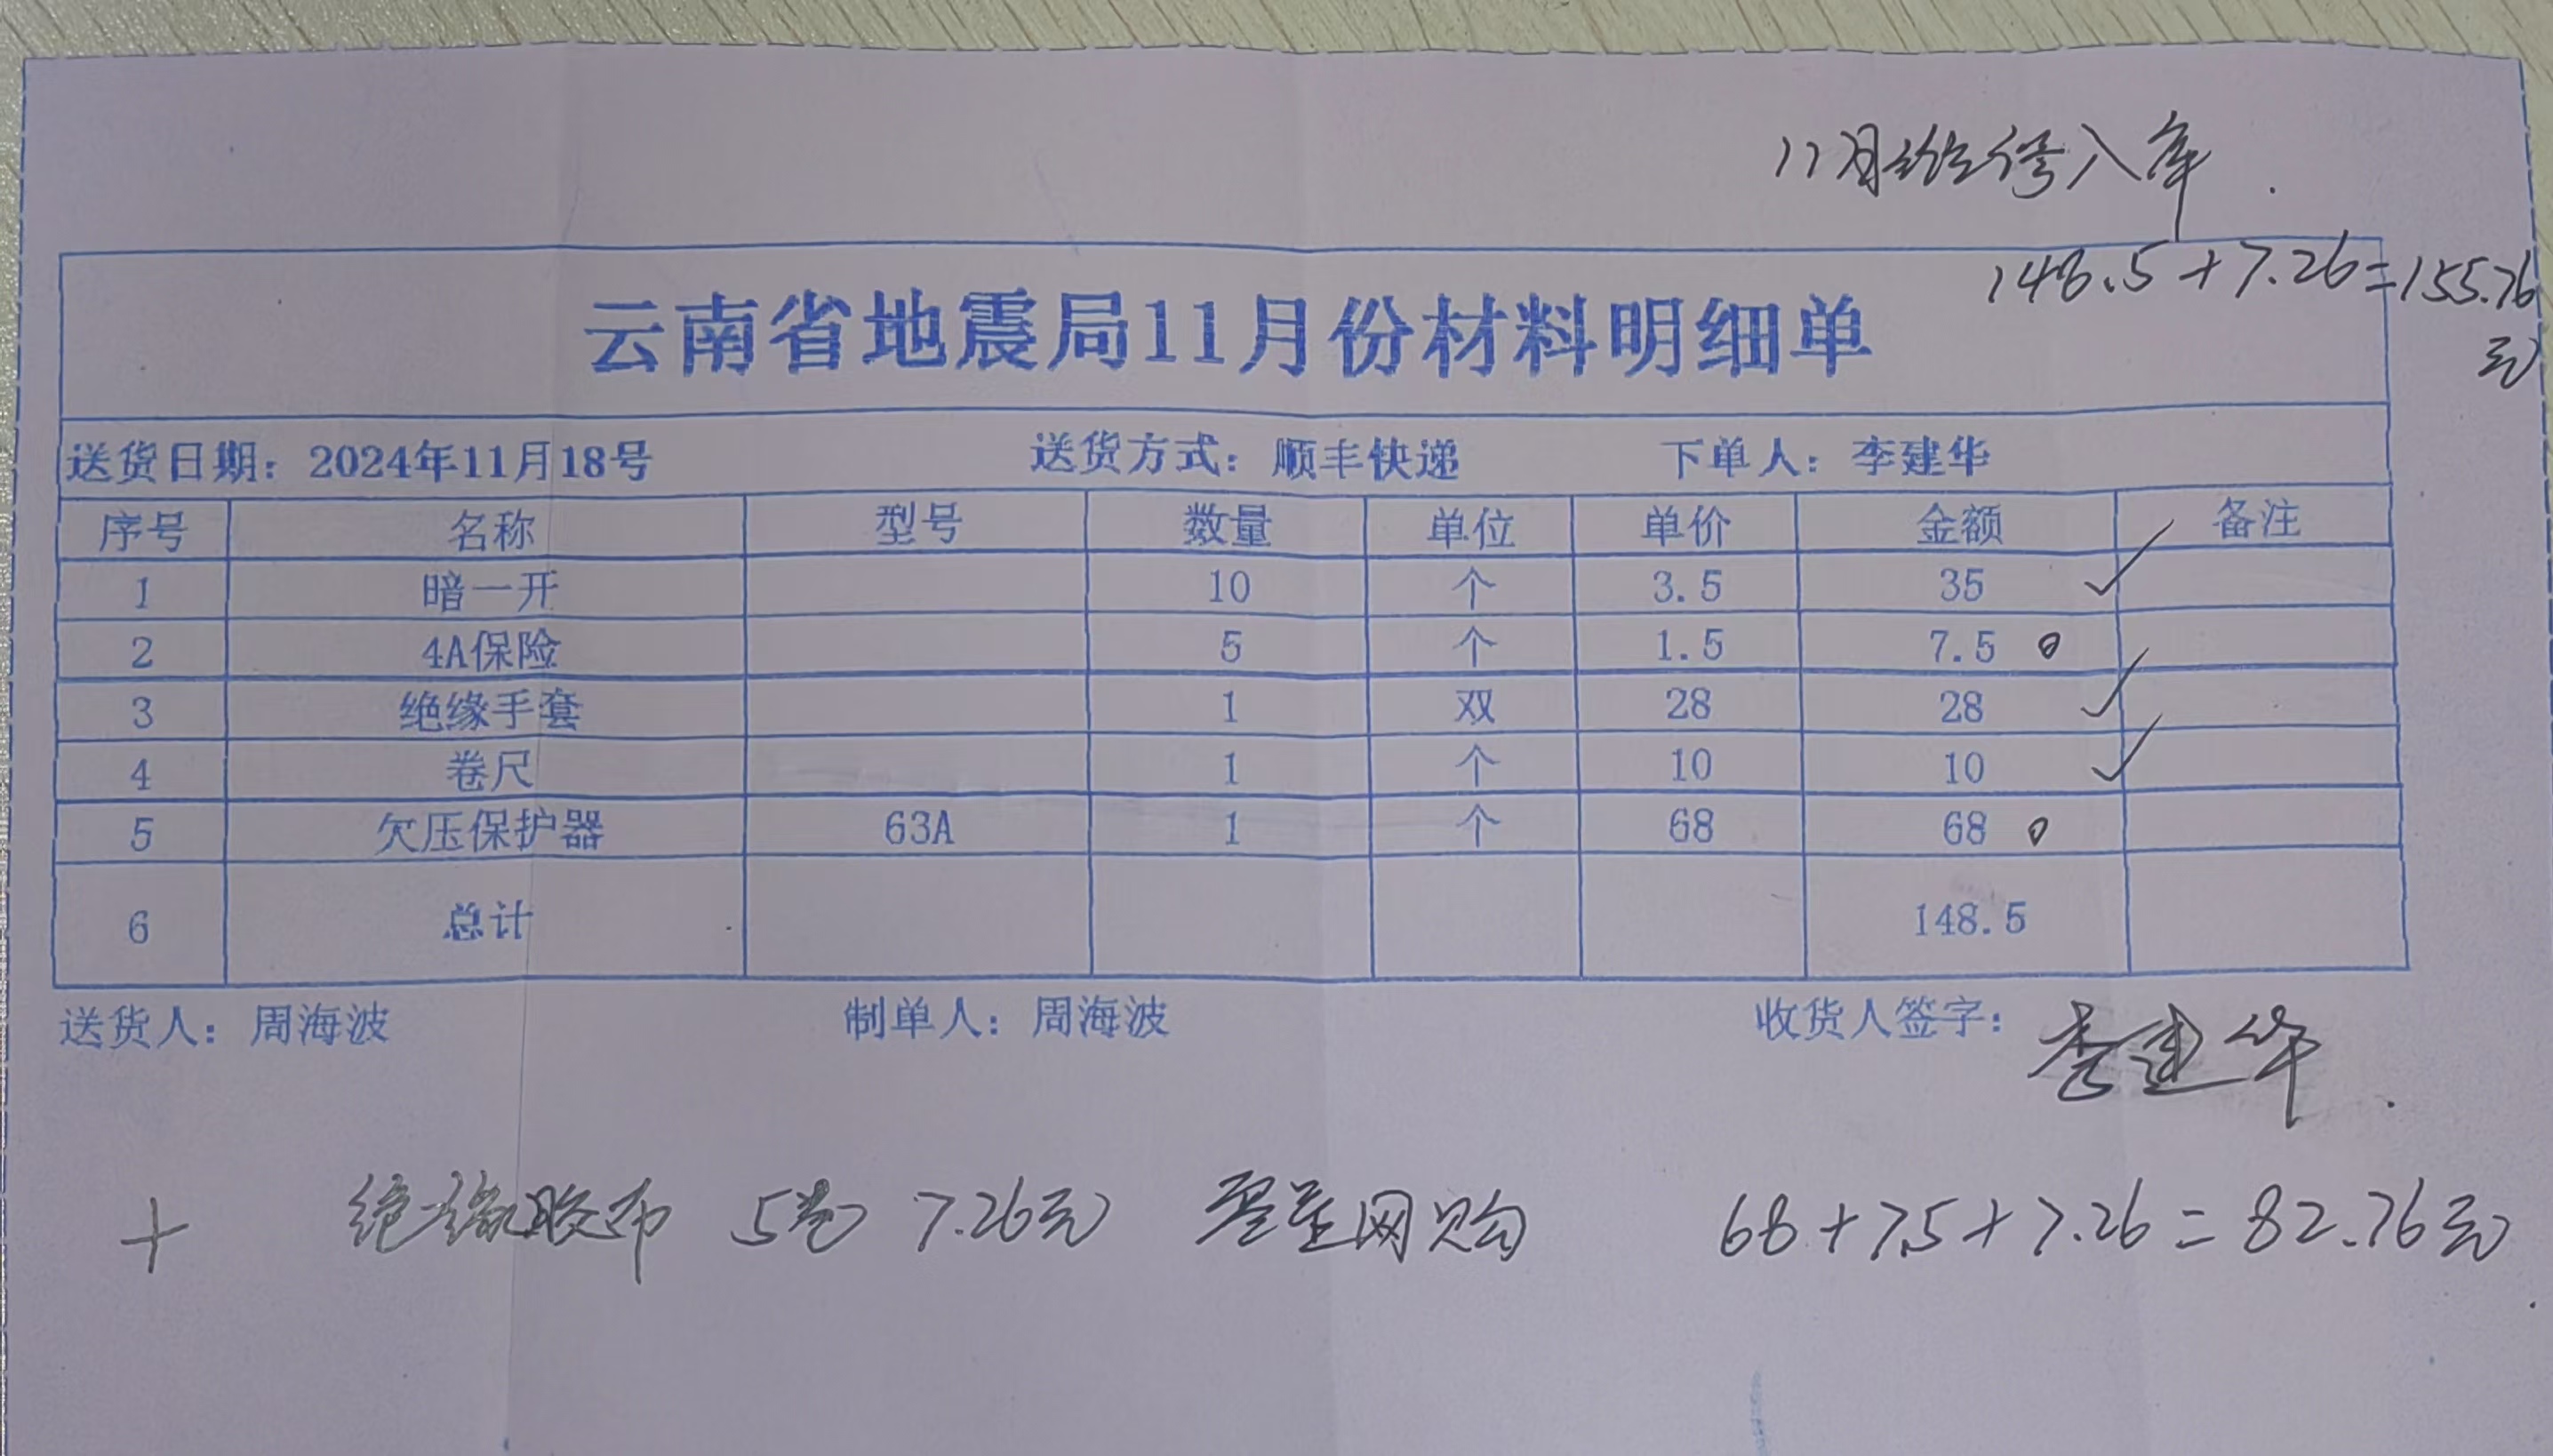 11月维修入库
148.5+7.26=155.76
元
云南省地震局11月份材料明细单
送货日期：2024年11月18号 送货方式：顺丰快递 下单人：李建华
序号 名称 型号 数量 单位 单价 金额 备注
1 暗一开 10 个 3.5 35 ✓
2 4A保险 5 个 1.5 7.5 o
3 绝缘手套 1 双 28 28 ✓
4 卷尺 1 个 10 10 ✓
5 欠压保护器 63A 1 个 68 68 o
6 总计 148.5
送货人：周海波 制单人：周海波 收货人签字：李建华
+ 绝缘胶布 5卷 7.26元 网购 68+7.5+7.26=82.76元